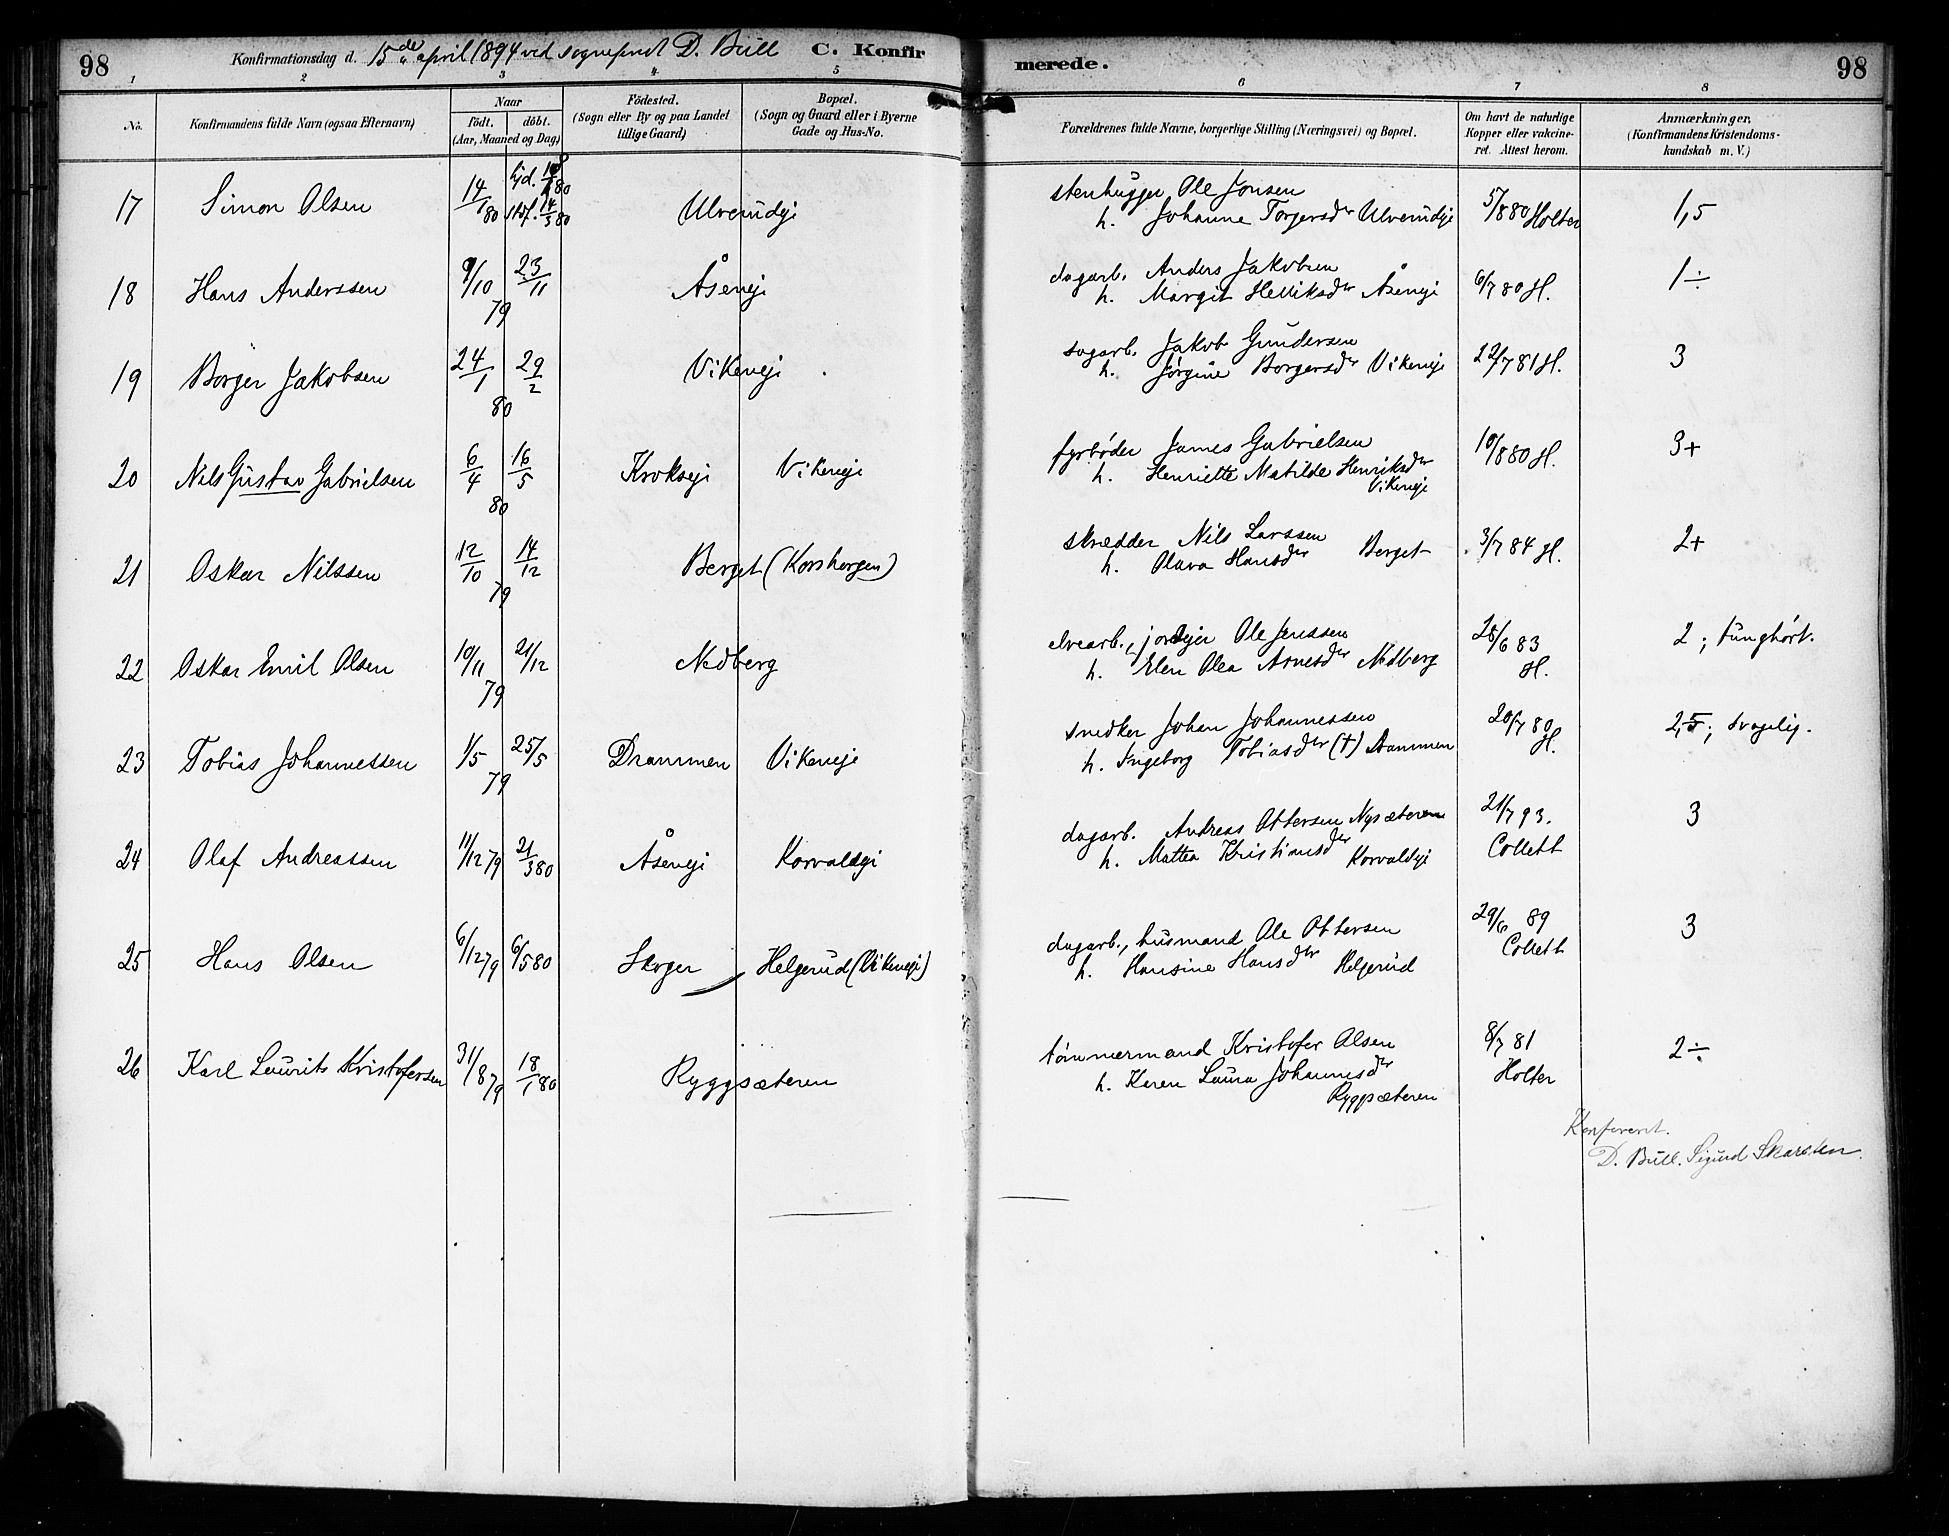 98 Konfirmationsdag d. 15de april 1894 ved sogneprest D. Bull C. Konfir merede. 98
1 2 3 4 5 6 7 8
No. Konfirmandens fulde Navn (ogsaa Efternavn)
Naar
Födt. döbt.
(Aar, Maaned og Dag)
Födested.
(Sogn eller By og paa Landet
tillige Gaard)
Bopæl.
(Sogn og Gaard eller i Byerne
Gade og Hus-No.
Forældrenes fulde Navne, borgerlige Stilling (Næringsvei) og Bopæl.
Om havt de naturlige
Kopper eller vakcine-
ret. Attest herom.
Anmærkninger,
(Konfirmandens Kristendoms-
kundskab m. V.)
17 Simon Olsen 14/1 80 hjd. 18/1 80 stdf. 14/5 80 Ulverudeje
stenhugger Ole Jonsen
h. Johanne Torgersdtr Ulverudeje 5/8 80 Holter 1,5
18 Hans Anderssen 9/10 23/11 79 Åseneje
dagarb. Anders Jakobsen
h. Margit Helliksdtr Åseneje 6/7 80 H. 1 ÷
19 Borger Jakobsen 24/1 29/2 80 Vikeneje
sagarb. Jakob Gundersen
h. Jørgine Borgersdtr Vikeneje 22/7 81 H. 3
20 Nils Gustav Gabrielsen 6/4 16/5 80 Krokseje Vikeneje
fyrbøder James Gabrielsen
h. Henriette Matilde Henriksdtr
Vikeneje 10/8 80 H. 3+
21 Oskar Nilssen 12/10 14/12 79 Berget (Korshorgen)
skrædder Nils Larssen
h. Olava Hansdtr Berget 3/7 84 H. 2+
22 Oskar Emil Olsen 10/11 21/12 79 Nedberg
elvearb., jordejer Ole Jenssen
h. Elen Olea Arnesdtr Nedberg 28/6 83 H. 2; tunghørt.
23 Tobias Johannessen 1/5 25/5 79 Drammen Vikeneje
snedker Johan Johannessen
h. Ingeborg Tobiasdtr (†) Drammen 20/7 80 H. 2,5; svagelig.
24 Olaf Andreassen 11/12 79 21/3 80 Åseneje Korvaldeje
dagarb. Andreas Ottersen Nysæteren
h. Mattea Kristiansdtr Korvaldeje 21/7 93. Collett 3
25 Hans Olsen 6/12 79 6/5 80 Skoger Helgerud (Vikeneje)
dagarb., husmand Ole Ottersen
h. Hansine Hansdtr Helgerud 29/6 89 Collett 3
26 Karl Laurits Kristofersen 31/8 79 18/1 80 Ryggsæteren
tømmermand Kristofer Olsen
h. Karen Laura Johannesdtr
Ryggsæteren 8/7 81 Holter 2 ÷
Konfereret.
D. Bull. Sigurd Skarsten